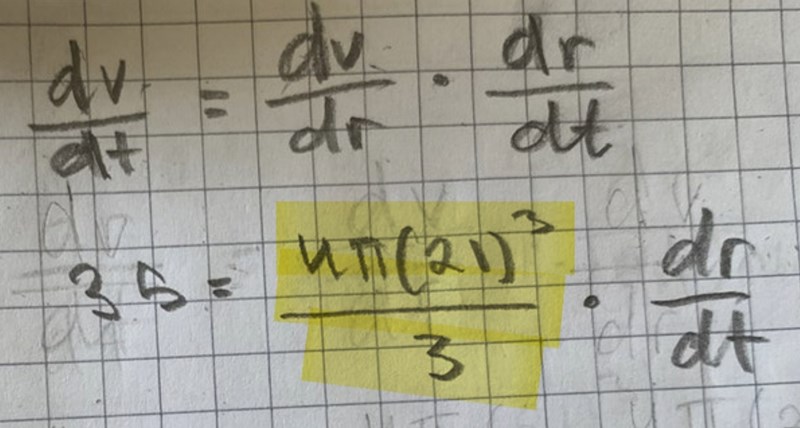 dv/dt = dv/dr · dr/dt
35 = 4π(21)³/3 · dr/dt